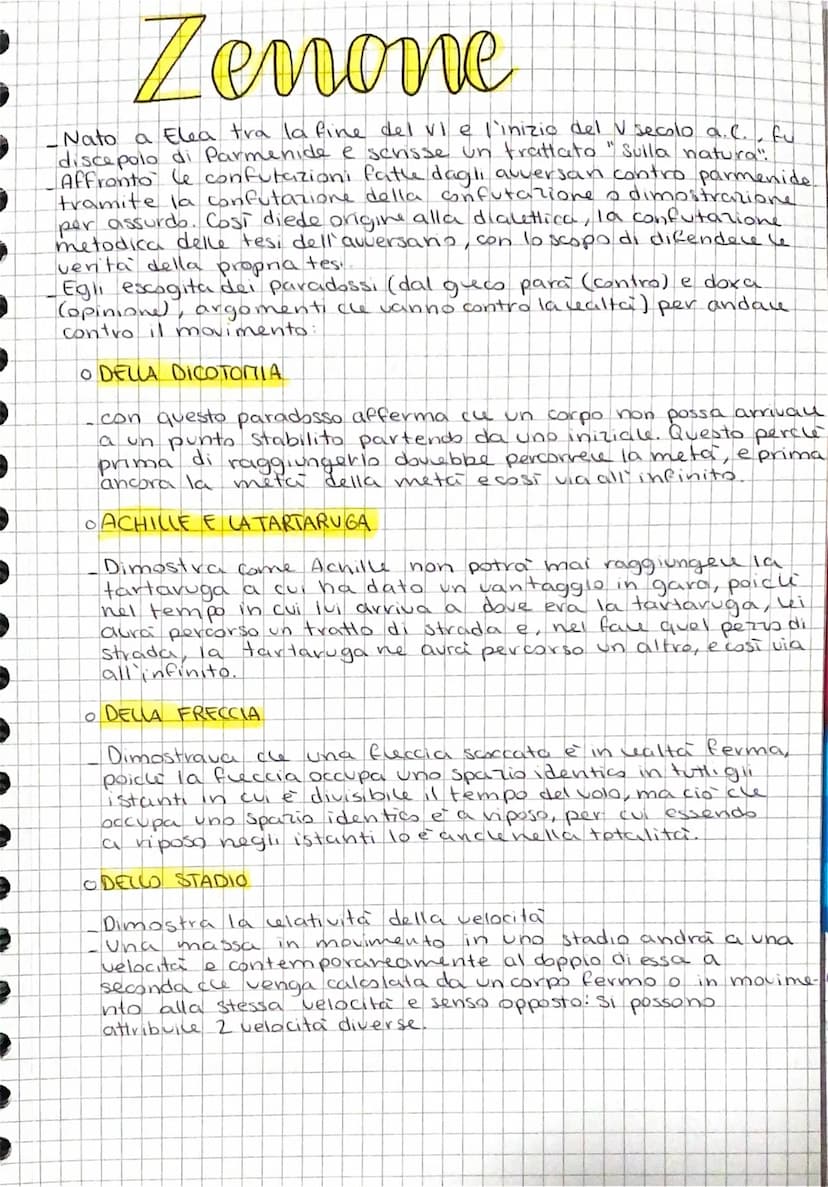 Zenone
- Nato a Elea tra la fine del VI e l'inizio del V secolo a.C., fu
discepolo di Parmenide e scrisse un trattato "Sulla natura".
- Affrontò le confutazioni fatte dagli avversari contro parmenide
tramite la confutazione della confutazione o dimostrazione
per assurdo. Così diede origine alla dialettica, la confutazione
metodica delle tesi dell'avversario, con lo scopo di difendere le
verità della propria tesi.
- Egli escogita dei paradossi (dal greco parà (contro) e doxa
(opinione), argomenti che vanno contro la realtà) per andare
contro il movimento:
○ DELLA DICOTOMIA
- con questo paradosso afferma che un corpo non possa arrivare
a un punto stabilito partendo da uno iniziale. Questo perché
prima di raggiungerlo dovrebbe percorrere la metà, e prima
ancora la metà della metà e così via all'infinito.
○ ACHILLE E LA TARTARUGA
- Dimostra come Achille non potrà mai raggiungere la
tartaruga a cui ha dato un vantaggio in gara, poiché
nel tempo in cui lui arriva a dove era la tartaruga, lei
avrà percorso un tratto di strada e, nel fare quel pezzo di
strada, la tartaruga ne avrà percorso un altro, e così via
all'infinito.
○ DELLA FRECCIA
- Dimostrava che una freccia scoccata è in realtà ferma,
poiché la freccia occupa uno spazio identico in tutti gli
istanti in cui è divisibile il tempo del volo, ma ciò che
occupa uno spazio identico è a riposo, per cui essendo
a riposo negli istanti lo è anche nella totalità.
○ DELLO STADIO
- Dimostra la relatività della velocità
- Una massa in movimento in uno stadio andrà a una
velocità e contemporaneamente al doppio di essa a
seconda che venga calcolata da un corpo fermo o in movime-
nto alla stessa velocità e senso opposto: si possono
attribuire 2 velocità diverse.